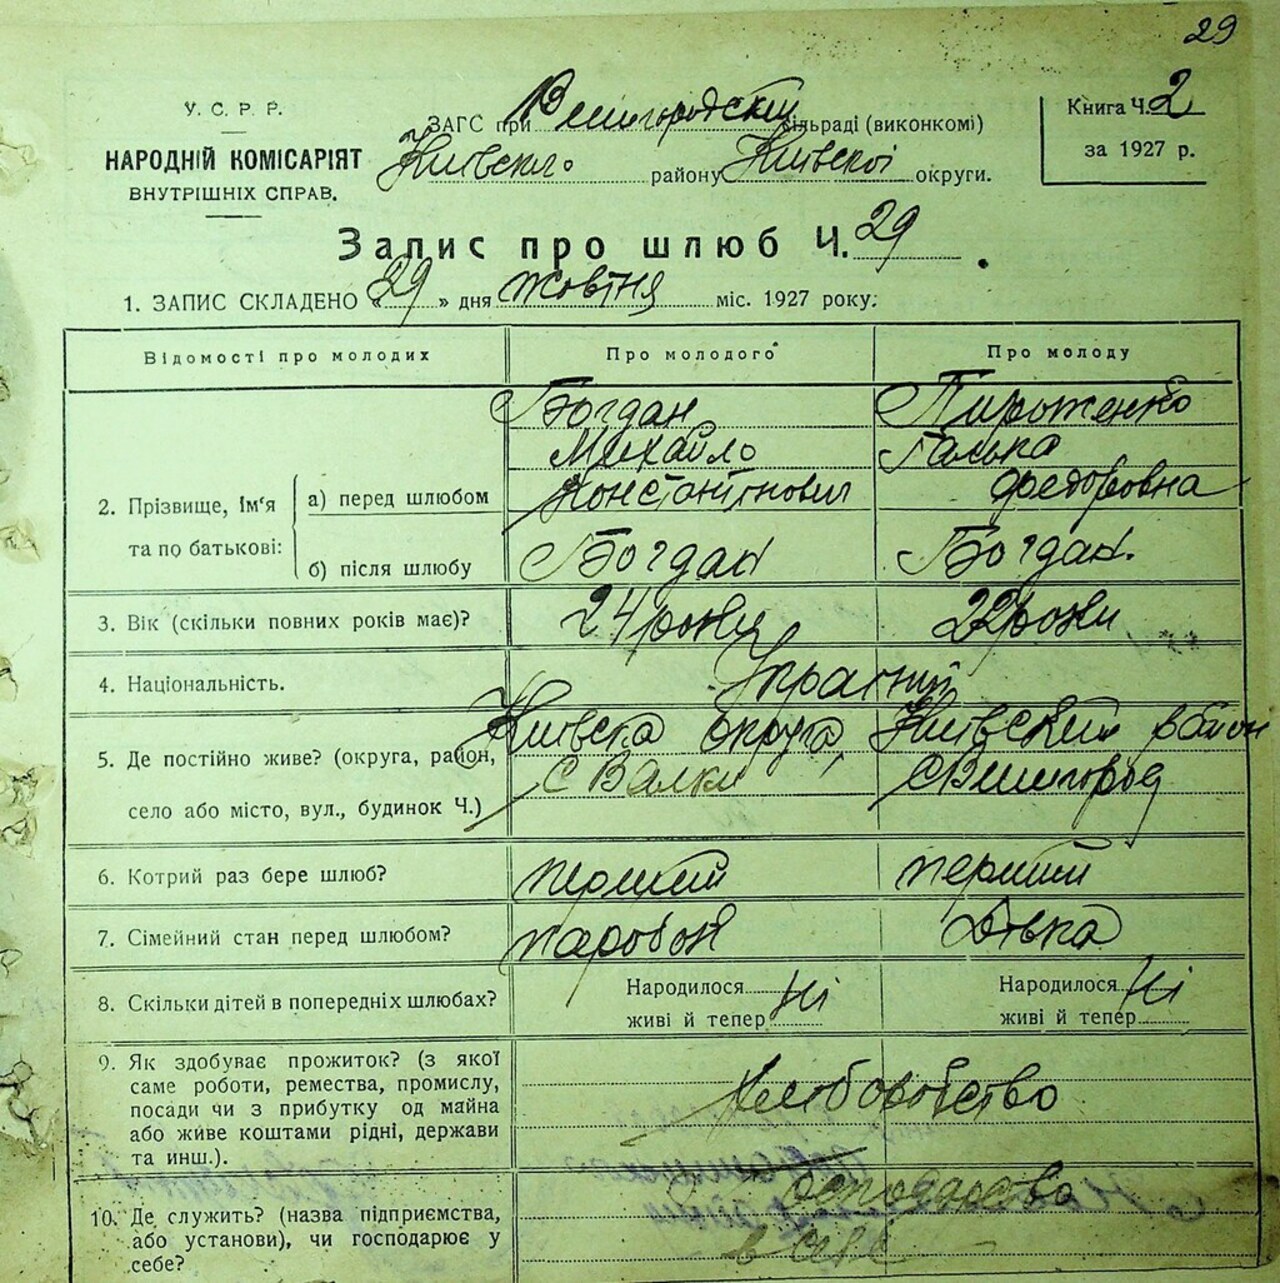 29
У. С. Р. Р.
НАРОДНІЙ КОМІСАРІЯТ
ВНУТРІШНІХ СПРАВ.
ЗАГС при Вишгородскій сільраді (виконкомі)
Київского району Київскої округи.
Книга Ч. 2
за 1927 р.
Запис про шлюб Ч. 29
1. ЗАПИС СКЛАДЕНО «29» дня жовтня міс. 1927 року.
Відомості про молодих Про молодого Про молоду
2. Прізвище, ім'я та по батькові:
а) перед шлюбом
Богдан Пироженко
Михайло Галька
Константінович Федоровна
б) після шлюбу Богдан Богдан.
3. Вік (скільки повних років має)? 24 роки 22 роки
4. Національність. Українці
5. Де постійно живе? (округа, район, село або місто, вул., будинок Ч.)
Київска округа, Київский район
с Валки с Вишгород
6. Котрий раз бере шлюб? перший перший
7. Сімейний стан перед шлюбом? паробок дівка
8. Скільки дітей в попередніх шлюбах? Народилося Ні Народилося Ні
живі й тепер живі й тепер
9. Як здобуває прожиток? (з якої
саме роботи, ремества, промислу,
посади чи з прибутку од майна
або живе коштами рідні, держави
та инш.).
хліборобство
10. Де служить? (назва підприємства,
або установи), чи господарює у
себе?
господарство
в себе